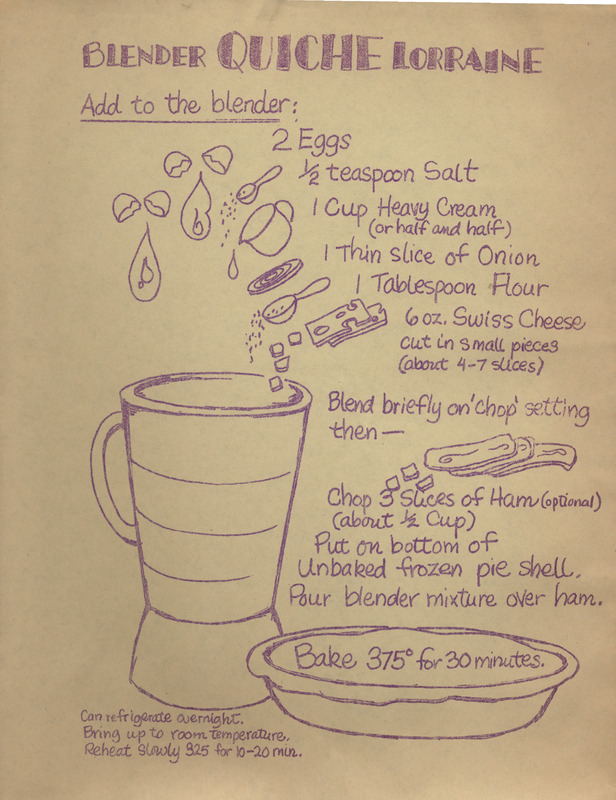 BLENDER QUICHE LORRAINE
Add to the blender:
2 Eggs
½ teaspoon Salt
1 Cup Heavy Cream
(or half and half)
1 Thin slice of Onion
1 Tablespoon Flour
6 oz. Swiss Cheese
cut in small pieces
(about 4-7 slices)
Blend briefly on 'chop' setting
then—
Chop 3 Slices of Ham (optional)
(about ½ Cup)
Put on bottom of
Unbaked frozen pie shell.
Pour blender mixture over ham.
Bake 375° for 30 minutes.
Can refrigerate overnight.
Bring up to room temperature.
Reheat slowly 325 for 10-20 min.